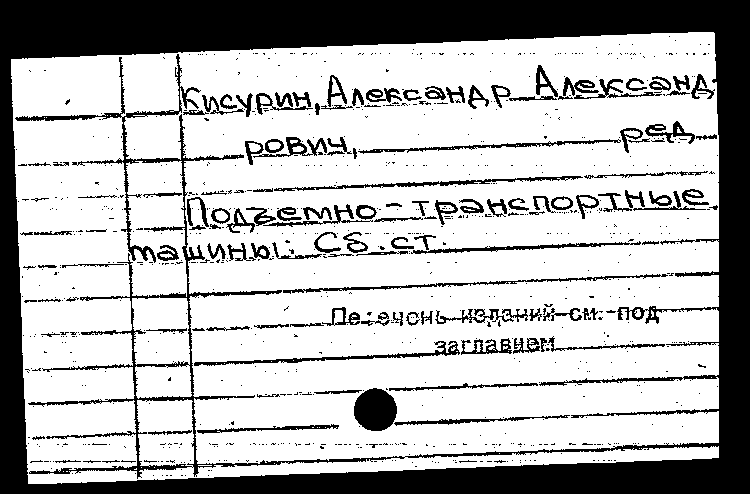 Кисурин, Александр Александ-
рович, ред.
Подъемно-транспортные
машины: Сб. ст.
Перечень изданий см. под
заглавием